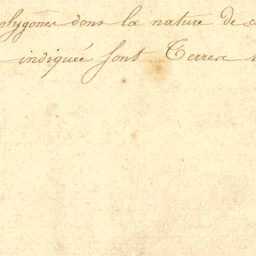 olygones dons la nature de c
indiquée sont Terrex